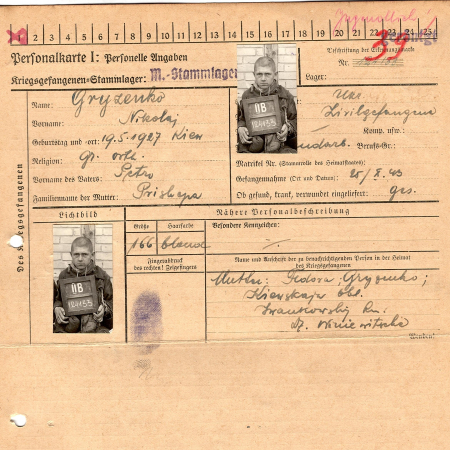 1 2 3 4 5 6 7 8 9 10 11 12 13 14 15 16 17 18 19 20 21 22 23 24 25
Jugendlich
Personalkarte I: Personelle Angaben
Kriegsgefangenen-Stammlager: M.-Stammlager
Beschriftung der Erkennungsmarke
Nr. 39
Lager:
Des Kriegsgefangenen
Name: Gryzenko
Vorname: Nikolaj
Geburtstag und -ort: 19.5.1927 Kiew
Religion: gr. orth.
Vorname des Vaters: Petro
Familienname der Mutter: Prishepa
II B
124155
Ukr.
Zivilgefangener
Komp. usw.:
Beruf:
Matrikel Nr. (Stammrolle des Heimatstaates)
Gefangennahme (Ort und Datum) 25/8.43
Ob gesund, krank, verwundet eingeliefert: ges.
Lichtbild
Nähere Personalbeschreibung
Größe
Haarfarbe
Besondere Kennzeichen:
166 blond
Fingerabdruck
des rechten! Zeigefingers
Name und Anschrift der zu benachrichtigenden Person in der Heimat
des Kriegsgefangenen
Mutter: Fedora Gryzenko;
Kiewskaja obl.
Iwankowskij Rn.
II B
124155